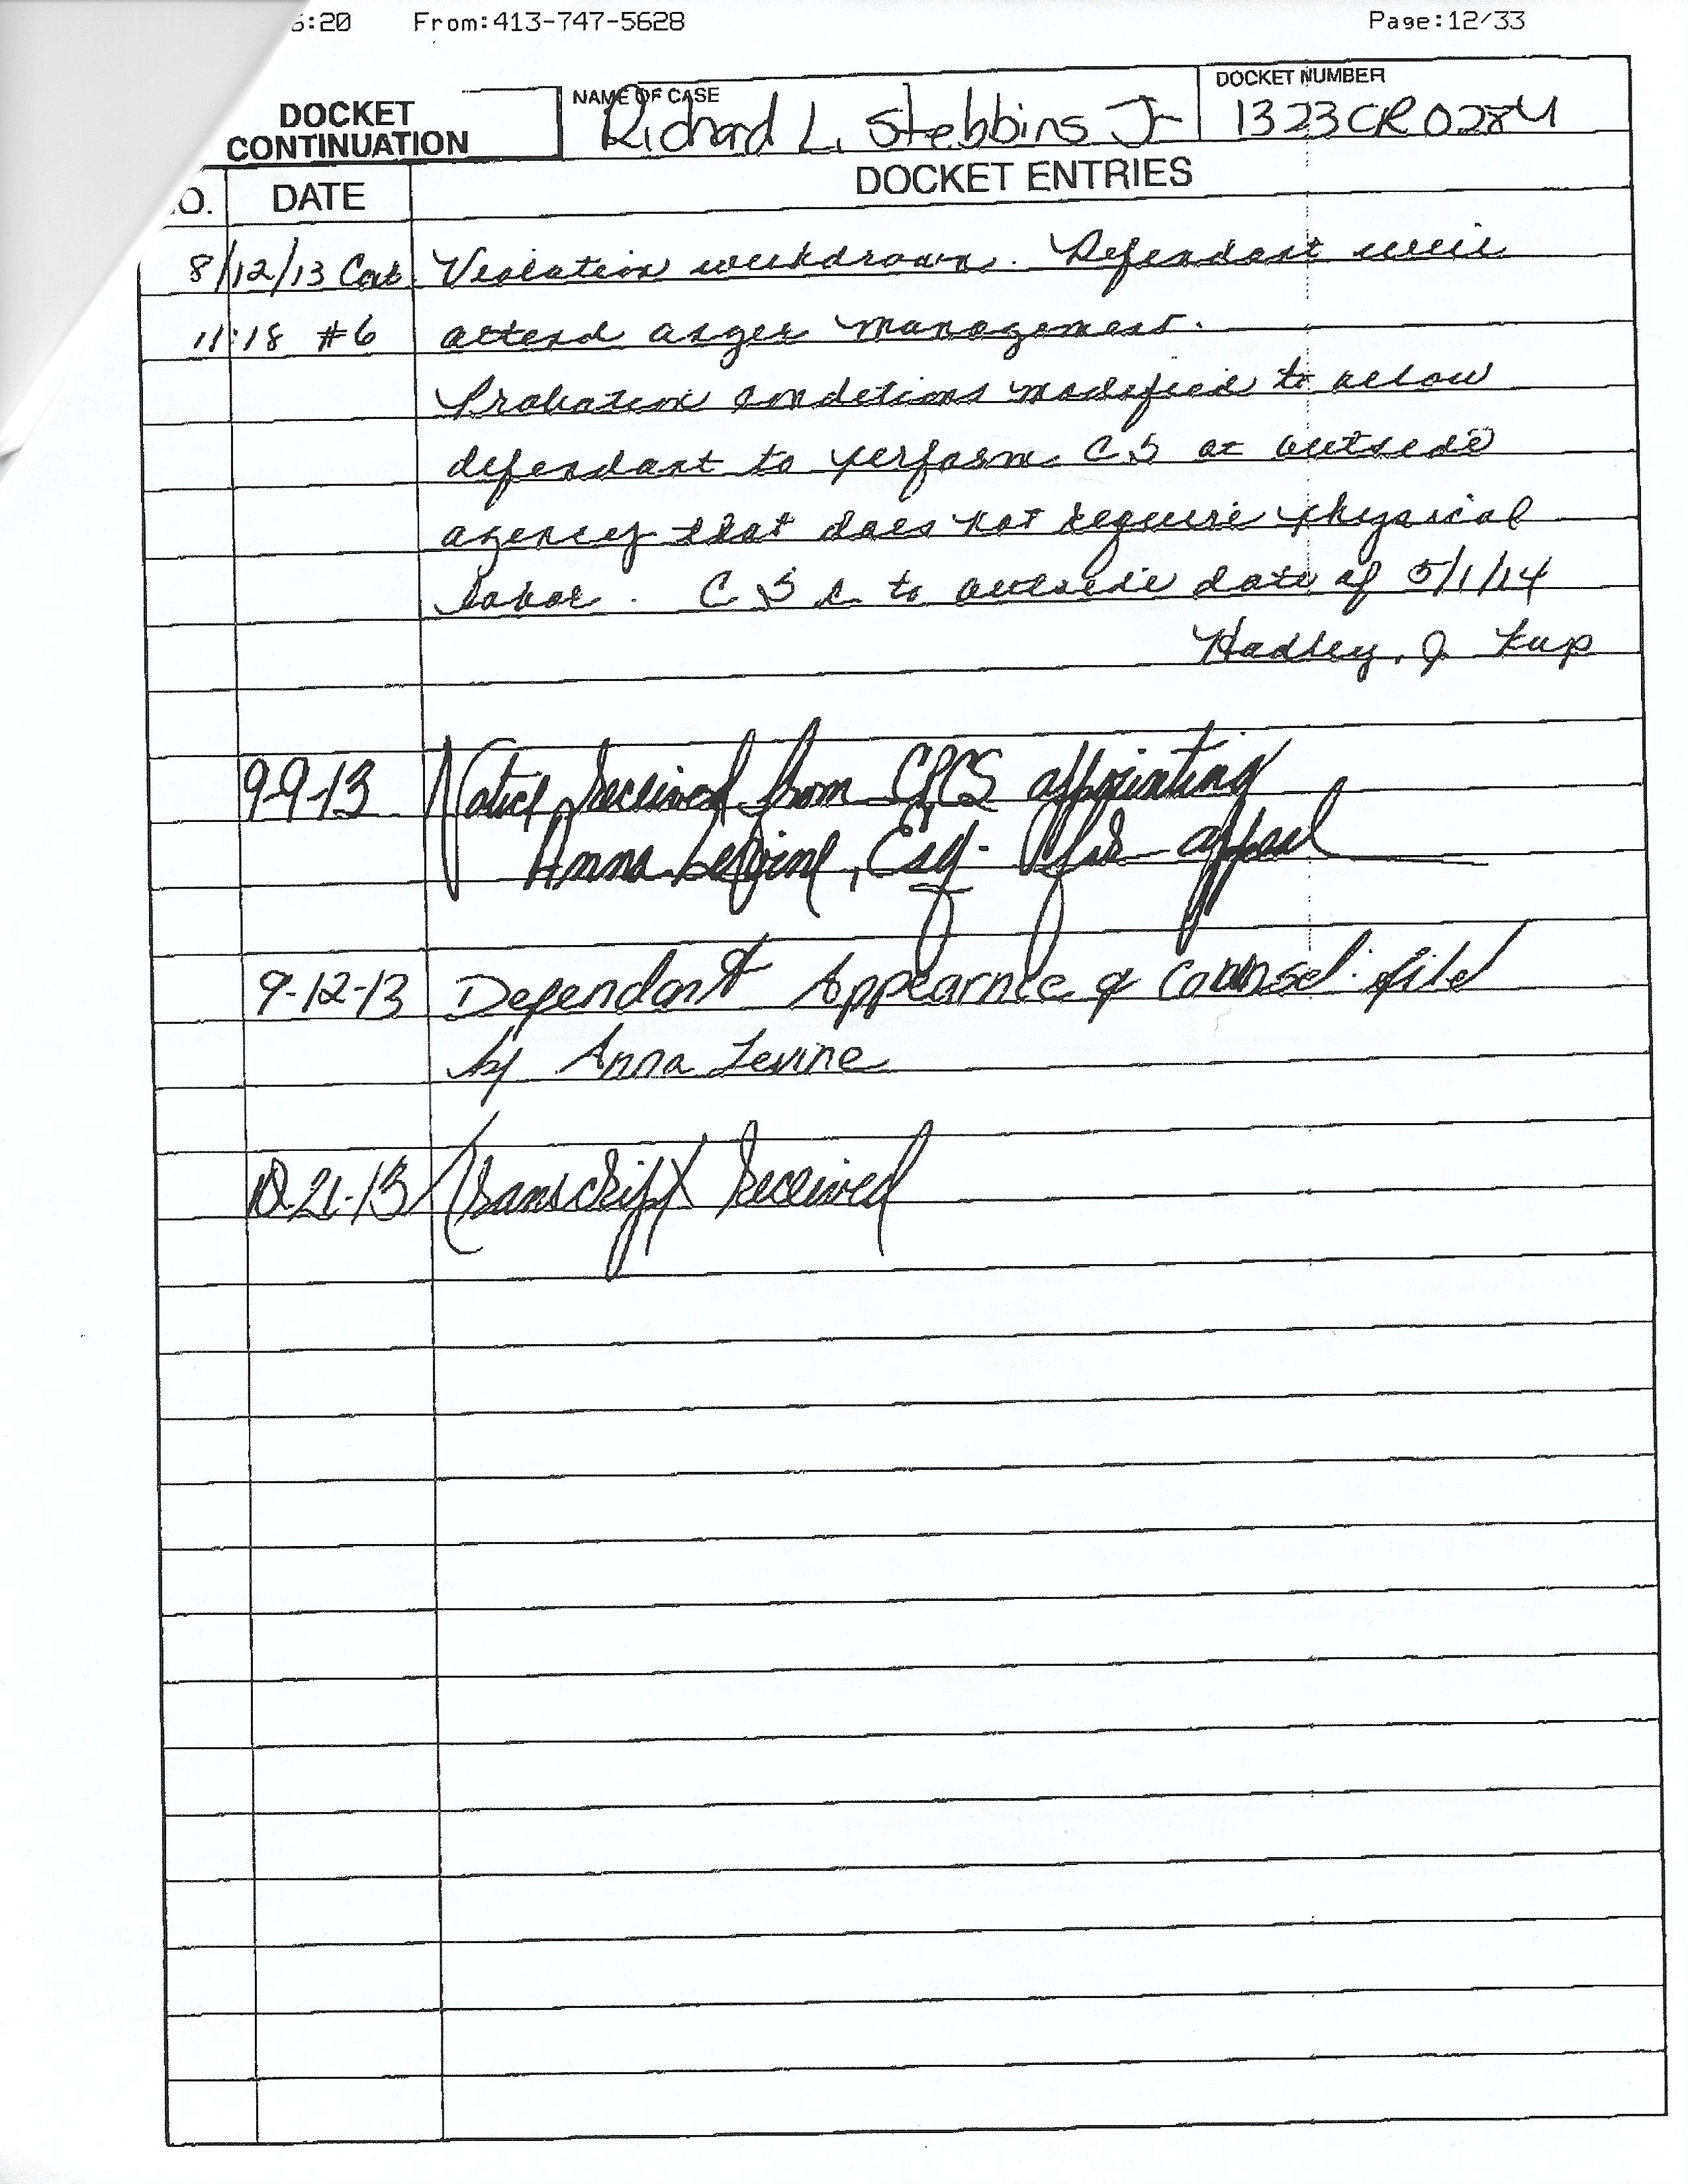 6:20 From:413-747-5628 Page:12/33
DOCKET CONTINUATION
NAME OF CASE
Richard L. Stebbins Jr
DOCKET NUMBER
1323CR0284
O. DATE DOCKET ENTRIES
8/12/13 Violation withdrawn. Defendant will
11:18 #6 attend anger management.
Probation conditions modified to allow
defendant to perform CS at outside
agency that does not require physical
labor. CS to outside date of 5/1/14
Hadley, J
9-9-13 Notice received from CPCS appointing
Anna Levine, Esq. for appeal
9-12-13 Defendant Appearnce of Counsel filed
by Anna Levine
10-21-13 Transcript received